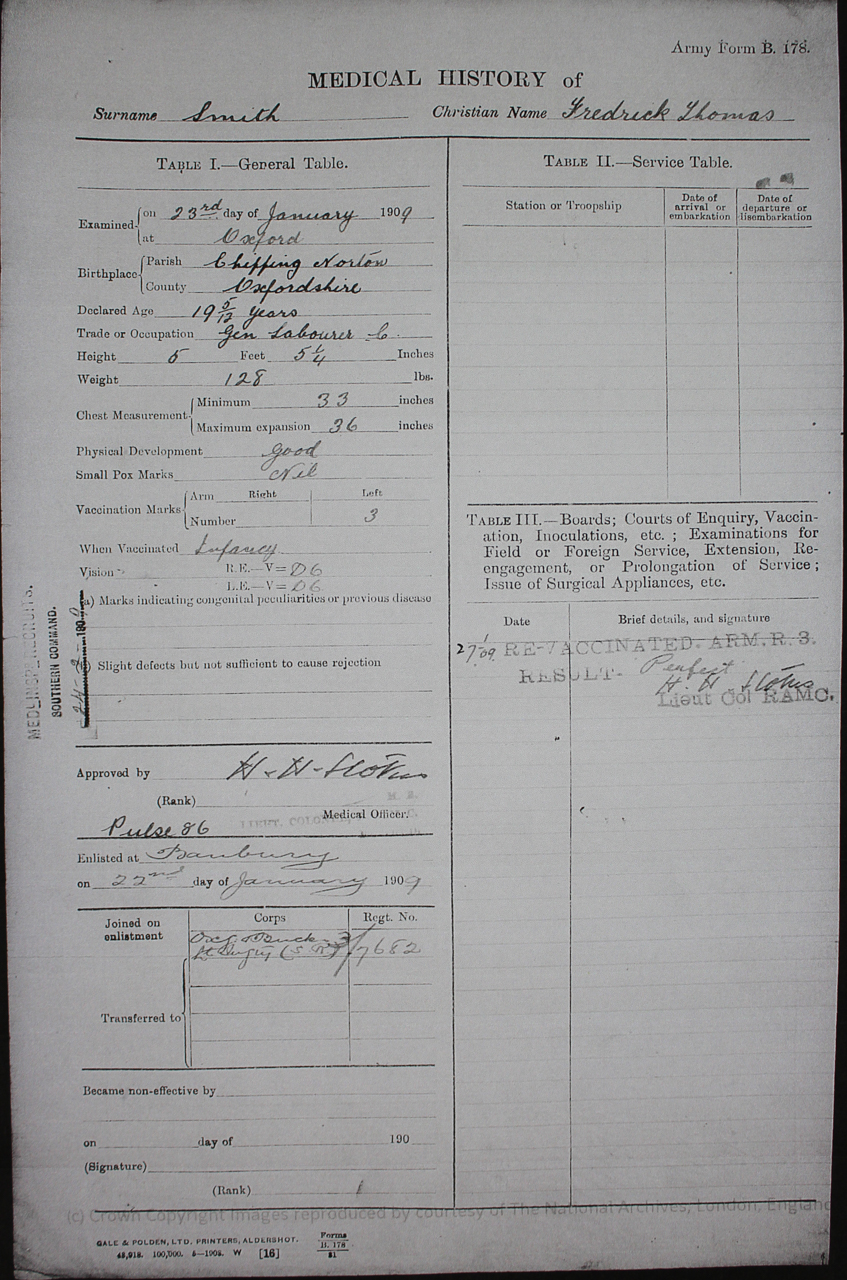 Army Form B. 178.
MEDICAL HISTORY of
Surname Smith Christian Name Fredrick Thomas
TABLE I.—General Table.
Examined on 23rd day of January 1909
at Oxford
Birthplace Parish Chipping Norton
County Oxfordshire
Declared Age 19 5/12 years
Trade or Occupation Gen Labourer C.
Height 5 Feet 5 1/4 Inches
Weight 128 lbs.
Chest Measurement Minimum 33 inches
Maximum expansion 36 inches
Physical Development Good
Small Pox Marks Nil
Vaccination Marks Arm Right Left
Number 3
When Vaccinated Infancy
Vision R.E.—V= D6
L.E.—V= D6
(a) Marks indicating congenital peculiarities or previous disease
(b) Slight defects but not sufficient to cause rejection
SOUTHERN COMMAND.
Approved by H. H.
(Rank)
LIEUT. COLONEL Medical Officer.
Pulse 86
Enlisted at Banbury
on 22nd day of January 1909
Joined on enlistment
Corps Regt. No.
Oxf. & Buck
Lt Infty (S.R) 3/7682
Transferred to
Became non-effective by
on day of 190
(Signature)
(Rank)
TABLE II.—Service Table.
Station or Troopship
Date of arrival or embarkation
Date of departure or disembarkation
TABLE III.—Boards; Courts of Enquiry, Vaccin-
ation, Inoculations, etc. ; Examinations for
Field or Foreign Service, Extension, Re-
engagement, or Prolongation of Service ;
Issue of Surgical Appliances, etc.
Date Brief details, and signature
27/1/09 RE-VACCINATED. ARM. R. 3.
RESULT- Perfect
H. H.
Lieut Col RAMC.
(c) Crown Copyright Images reproduced by courtesy of The National Archives, London, England
GALE & POLDEN, LTD. PRINTERS, ALDERSHOT.
100,000. 6—1908. W [16]
Forms
B. 178